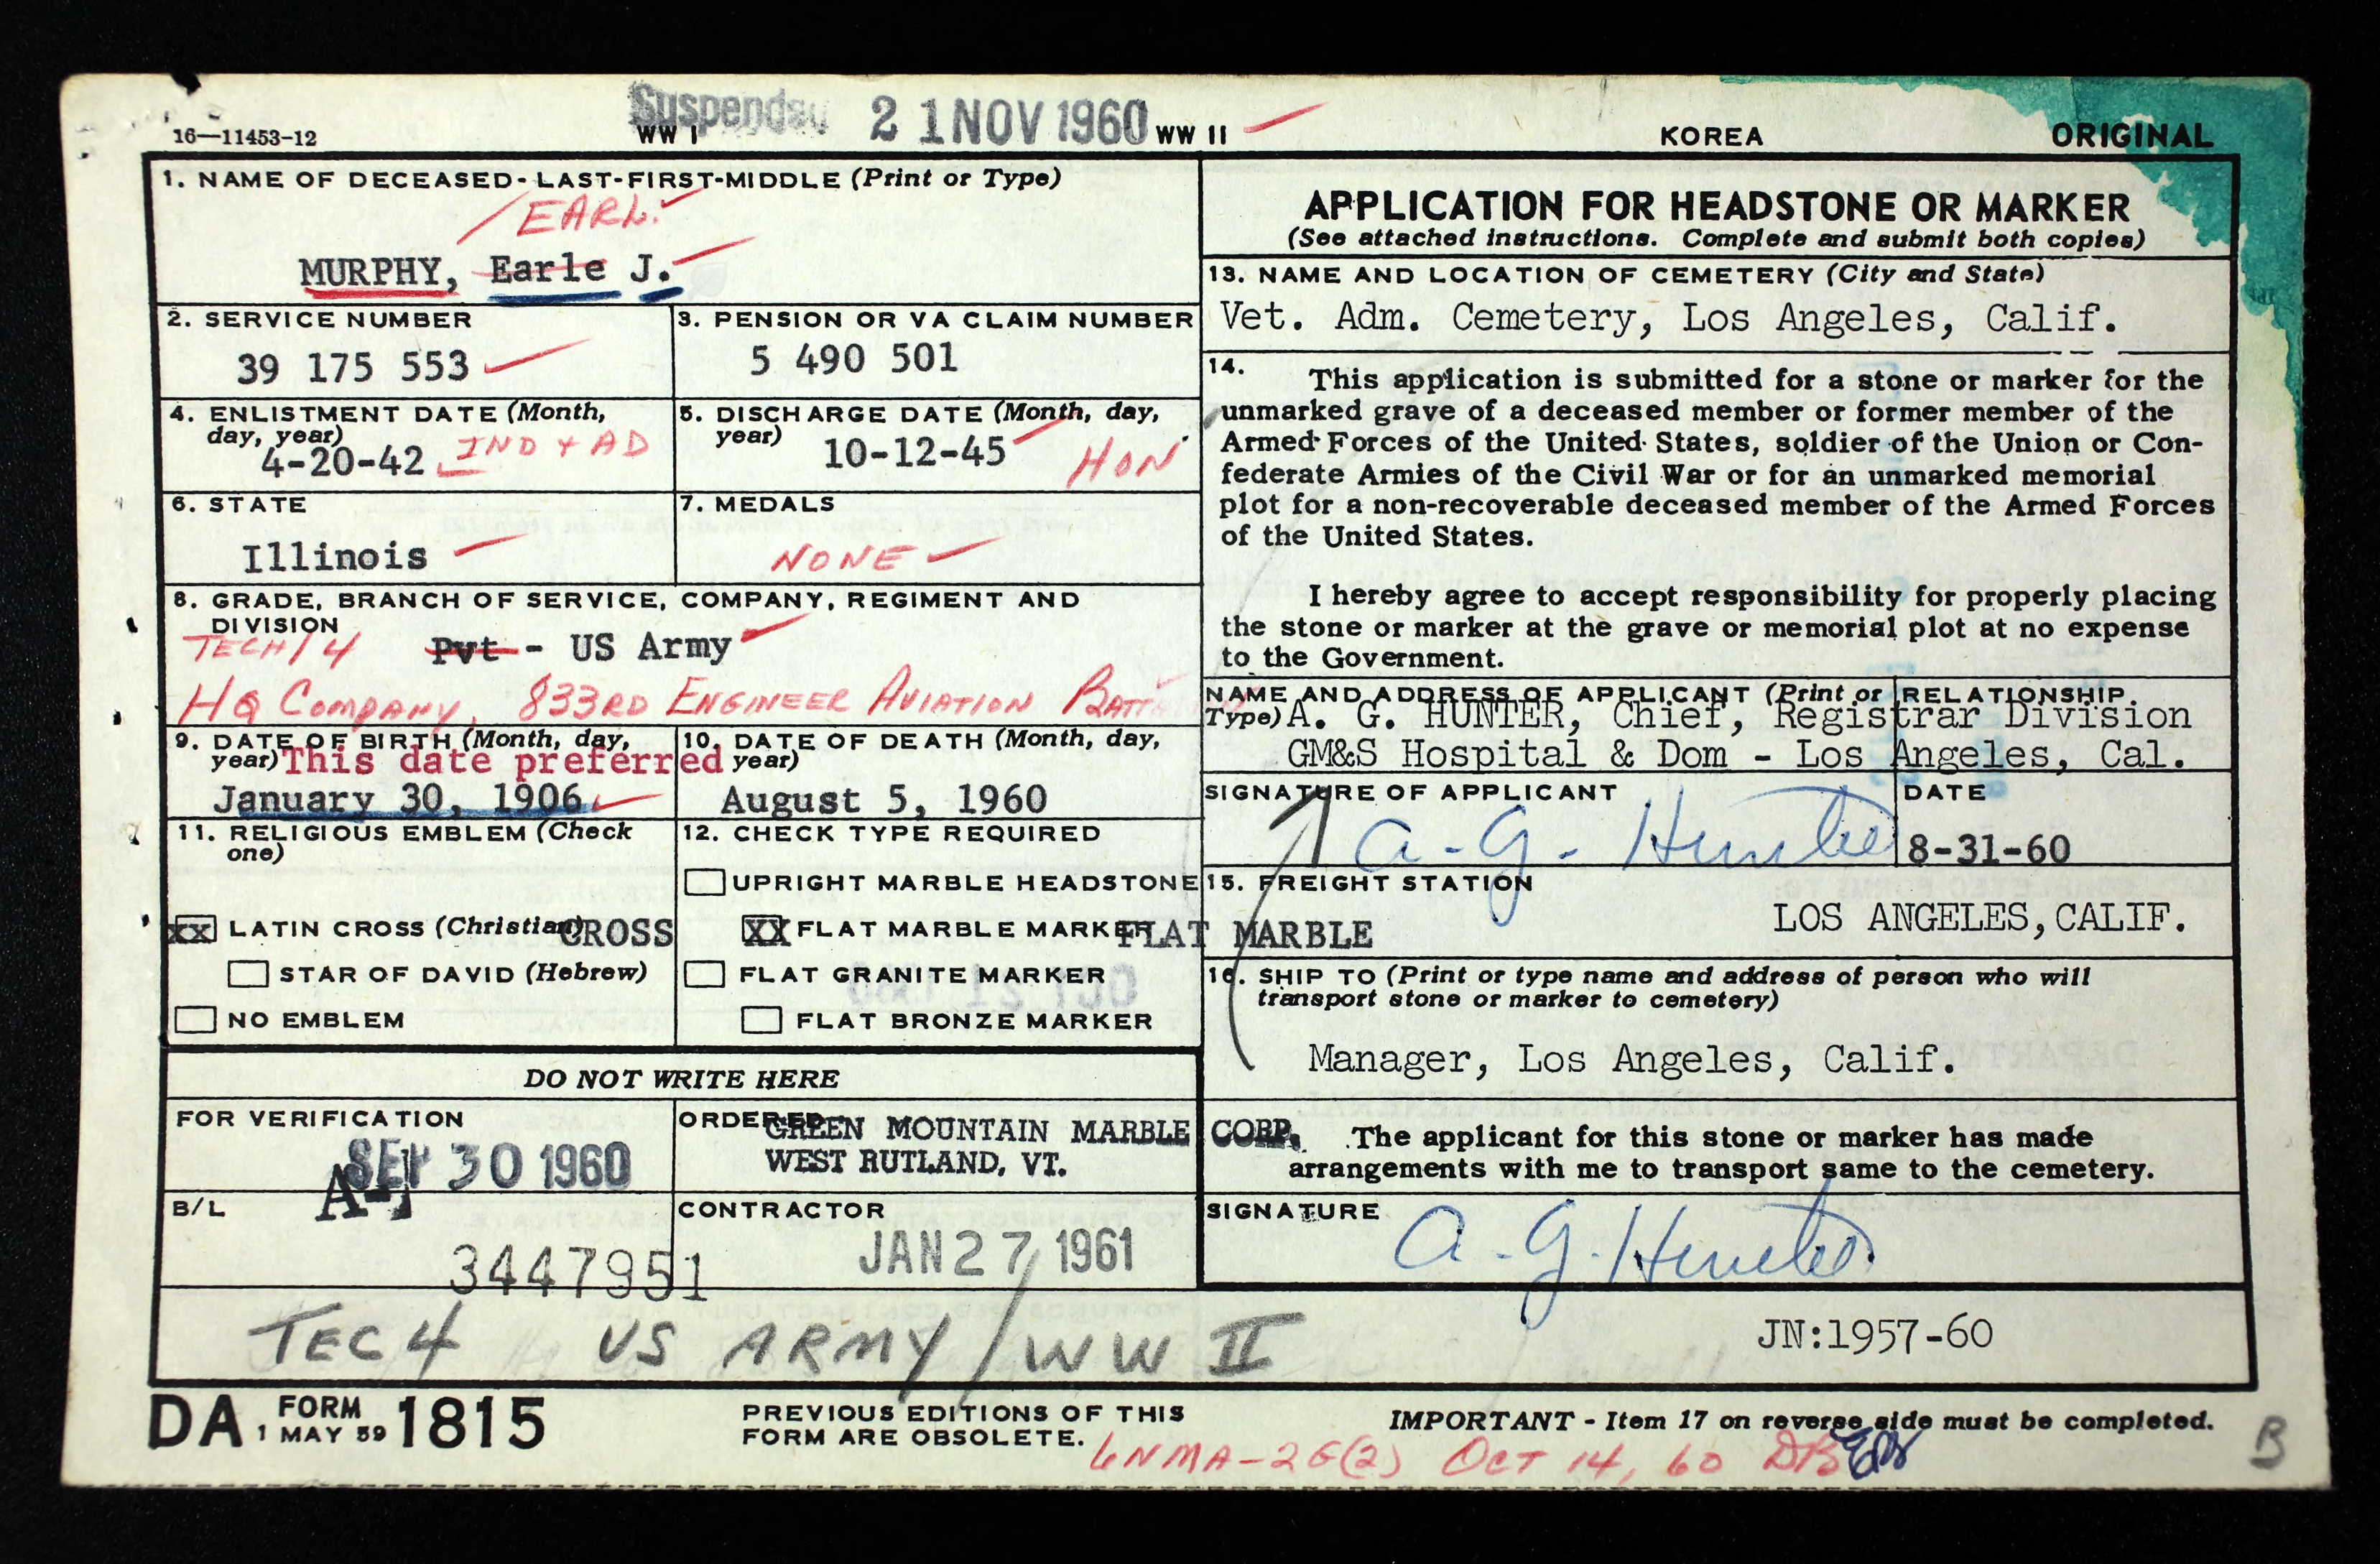 Suspended 21 NOV 1960
16—11453-12 WW I WW II KOREA ORIGINAL
1. NAME OF DECEASED-LAST-FIRST-MIDDLE (Print or Type)
EARL
MURPHY, Earle J.
2. SERVICE NUMBER
39 175 553
3. PENSION OR VA CLAIM NUMBER
5 490 501
4. ENLISTMENT DATE (Month, day, year)
4-20-42 IND + AD
5. DISCHARGE DATE (Month, day, year)
10-12-45 HON
6. STATE
Illinois
7. MEDALS
NONE
8. GRADE, BRANCH OF SERVICE, COMPANY, REGIMENT AND
DIVISION
TECH/4 Pvt - US Army
HQ COMPANY, 833RD ENGINEER AVIATION BATTALION
9. DATE OF BIRTH (Month, day,
year) This date preferred
January 30, 1906
10. DATE OF DEATH (Month, day,
year)
August 5, 1960
11. RELIGIOUS EMBLEM (Check
one)
XX LATIN CROSS (Christian) CROSS
STAR OF DAVID (Hebrew)
NO EMBLEM
12. CHECK TYPE REQUIRED
UPRIGHT MARBLE HEADSTONE
XX FLAT MARBLE MARKER FLAT MARBLE
FLAT GRANITE MARKER
FLAT BRONZE MARKER
DO NOT WRITE HERE
FOR VERIFICATION
SEP 30 1960
A-1
ORDERED
GREEN MOUNTAIN MARBLE CORP.
WEST RUTLAND, VT.
B/L
3447951
CONTRACTOR
JAN 27 1961
TEC 4 US ARMY / WW II
APPLICATION FOR HEADSTONE OR MARKER
(See attached instructions. Complete and submit both copies)
13. NAME AND LOCATION OF CEMETERY (City and State)
Vet. Adm. Cemetery, Los Angeles, Calif.
14. This application is submitted for a stone or marker for the
unmarked grave of a deceased member or former member of the
Armed Forces of the United States, soldier of the Union or Con-
federate Armies of the Civil War or for an unmarked memorial
plot for a non-recoverable deceased member of the Armed Forces
of the United States.
I hereby agree to accept responsibility for properly placing
the stone or marker at the grave or memorial plot at no expense
to the Government.
NAME AND ADDRESS OF APPLICANT (Print or Type) RELATIONSHIP
A. G. HUNTER, Chief, Registrar Division
GM&S Hospital & Dom - Los Angeles, Cal.
SIGNATURE OF APPLICANT
A. G. Hunter
DATE
8-31-60
15. FREIGHT STATION
LOS ANGELES, CALIF.
16. SHIP TO (Print or type name and address of person who will
transport stone or marker to cemetery)
Manager, Los Angeles, Calif.
The applicant for this stone or marker has made
arrangements with me to transport same to the cemetery.
SIGNATURE
A. G. Hunter
JN:1957-60
DA FORM 1815
1 MAY 59
PREVIOUS EDITIONS OF THIS
FORM ARE OBSOLETE.
IMPORTANT - Item 17 on reverse side must be completed.
6NMA-26(2) OCT 14, 60 DB
B